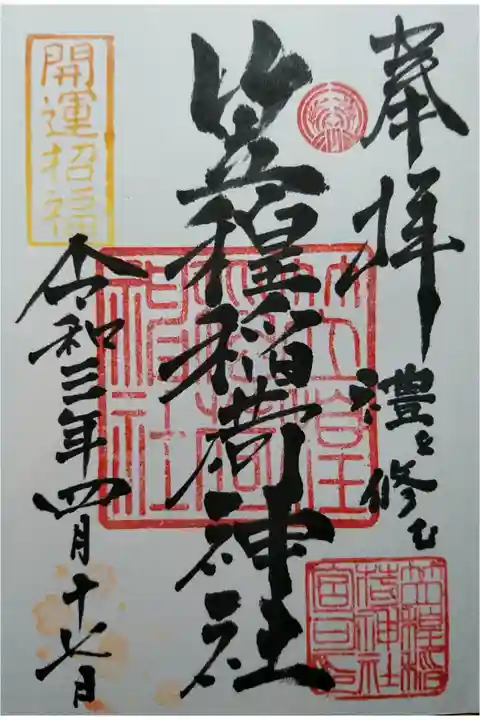 奉拝
禮を修む
笠䅣稲荷神社
笠䅣
稲荷
神社
笠䅣稲
荷神社
宮司印
開運招福
令和三年四月十七日